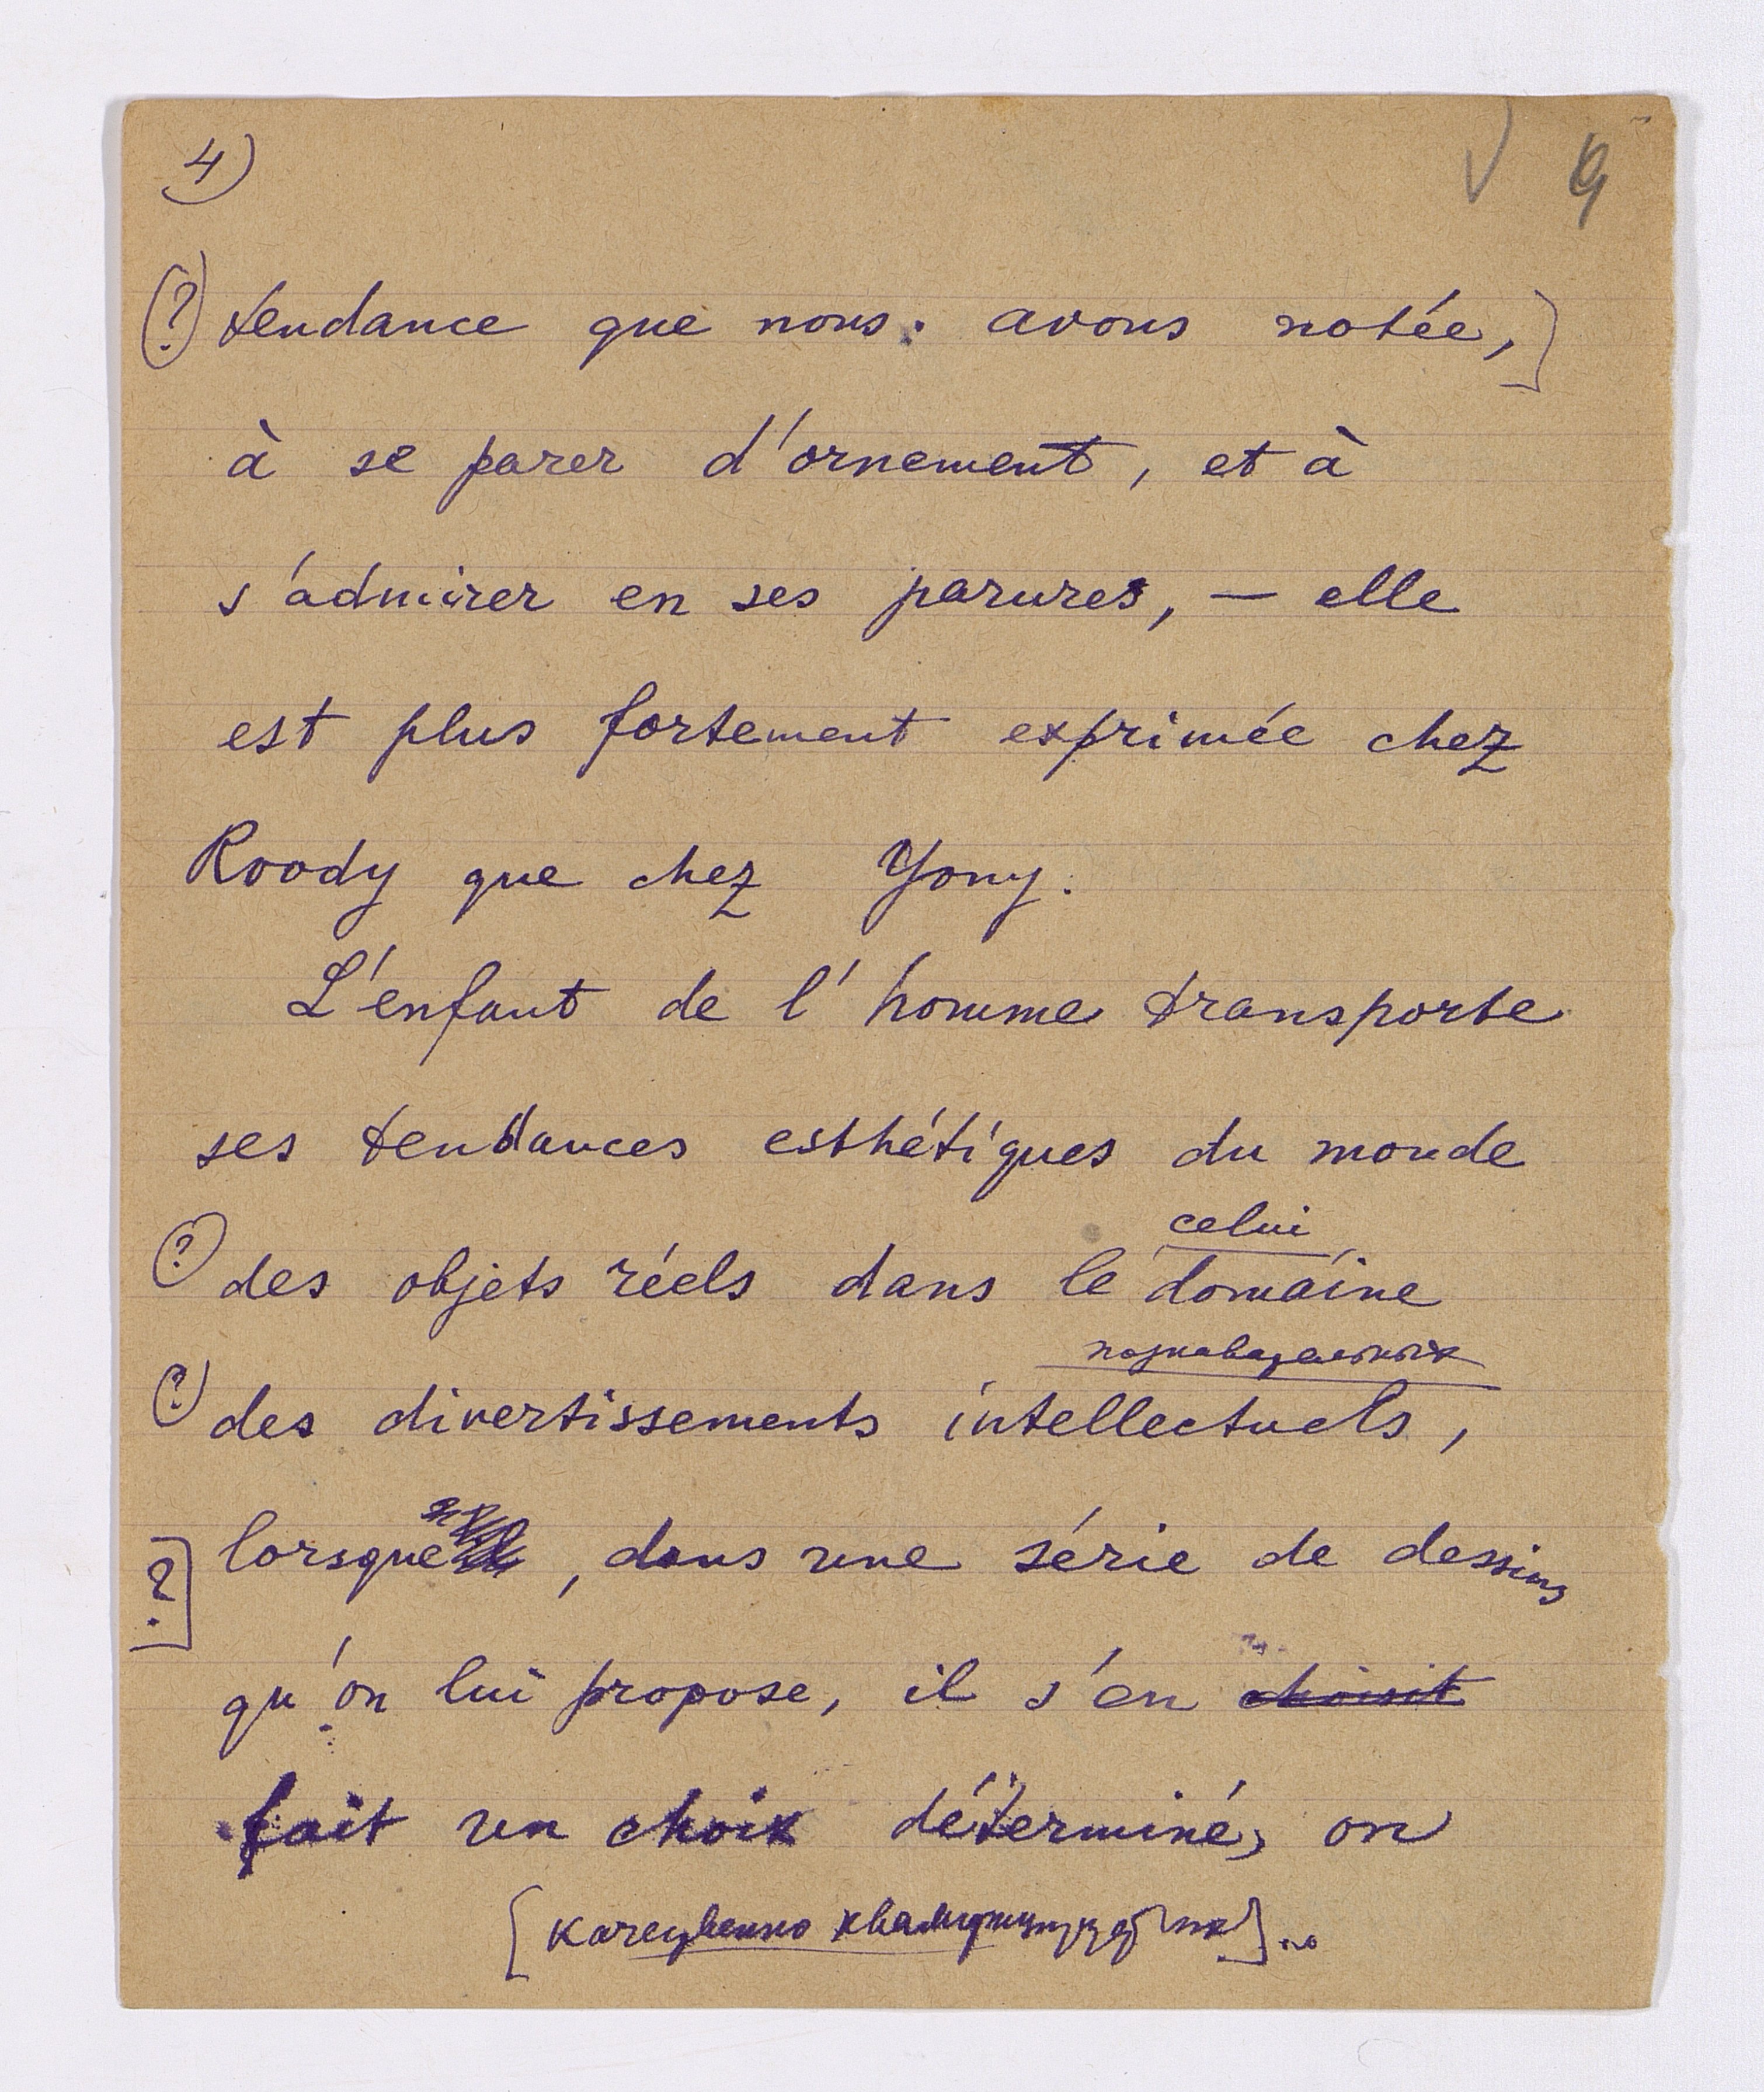 4)
(?) tendance que nous avons notée,]
à se parer d'ornement, et à
s'admirer en ses parures, — elle
est plus fortement exprimée chez
Roody que chez Yony.
L'enfant de l'homme transporte
ses tendances esthétiques du monde
celui
(?) des objets réels dans le domaine
познавательных
(?) des divertissements intellectuels,
[?] lorsque, dans une série de dessins
qu'on lui propose, il s'en choisit
fait un choix déterminé, on
[качественно